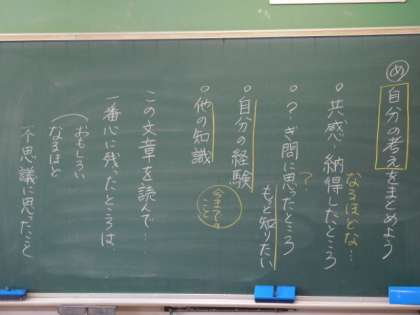 め 自分の考えをまとめよう
なるほどな…
○共感・納得したところ
?
○?ぎ問に思ったところ
もっと知りたい
○自分の経験
今までの
こと
○他の知識
この文章を読んで…
一番心に残ったところは、
おもしろい
なるほど
不思議に思ったこと